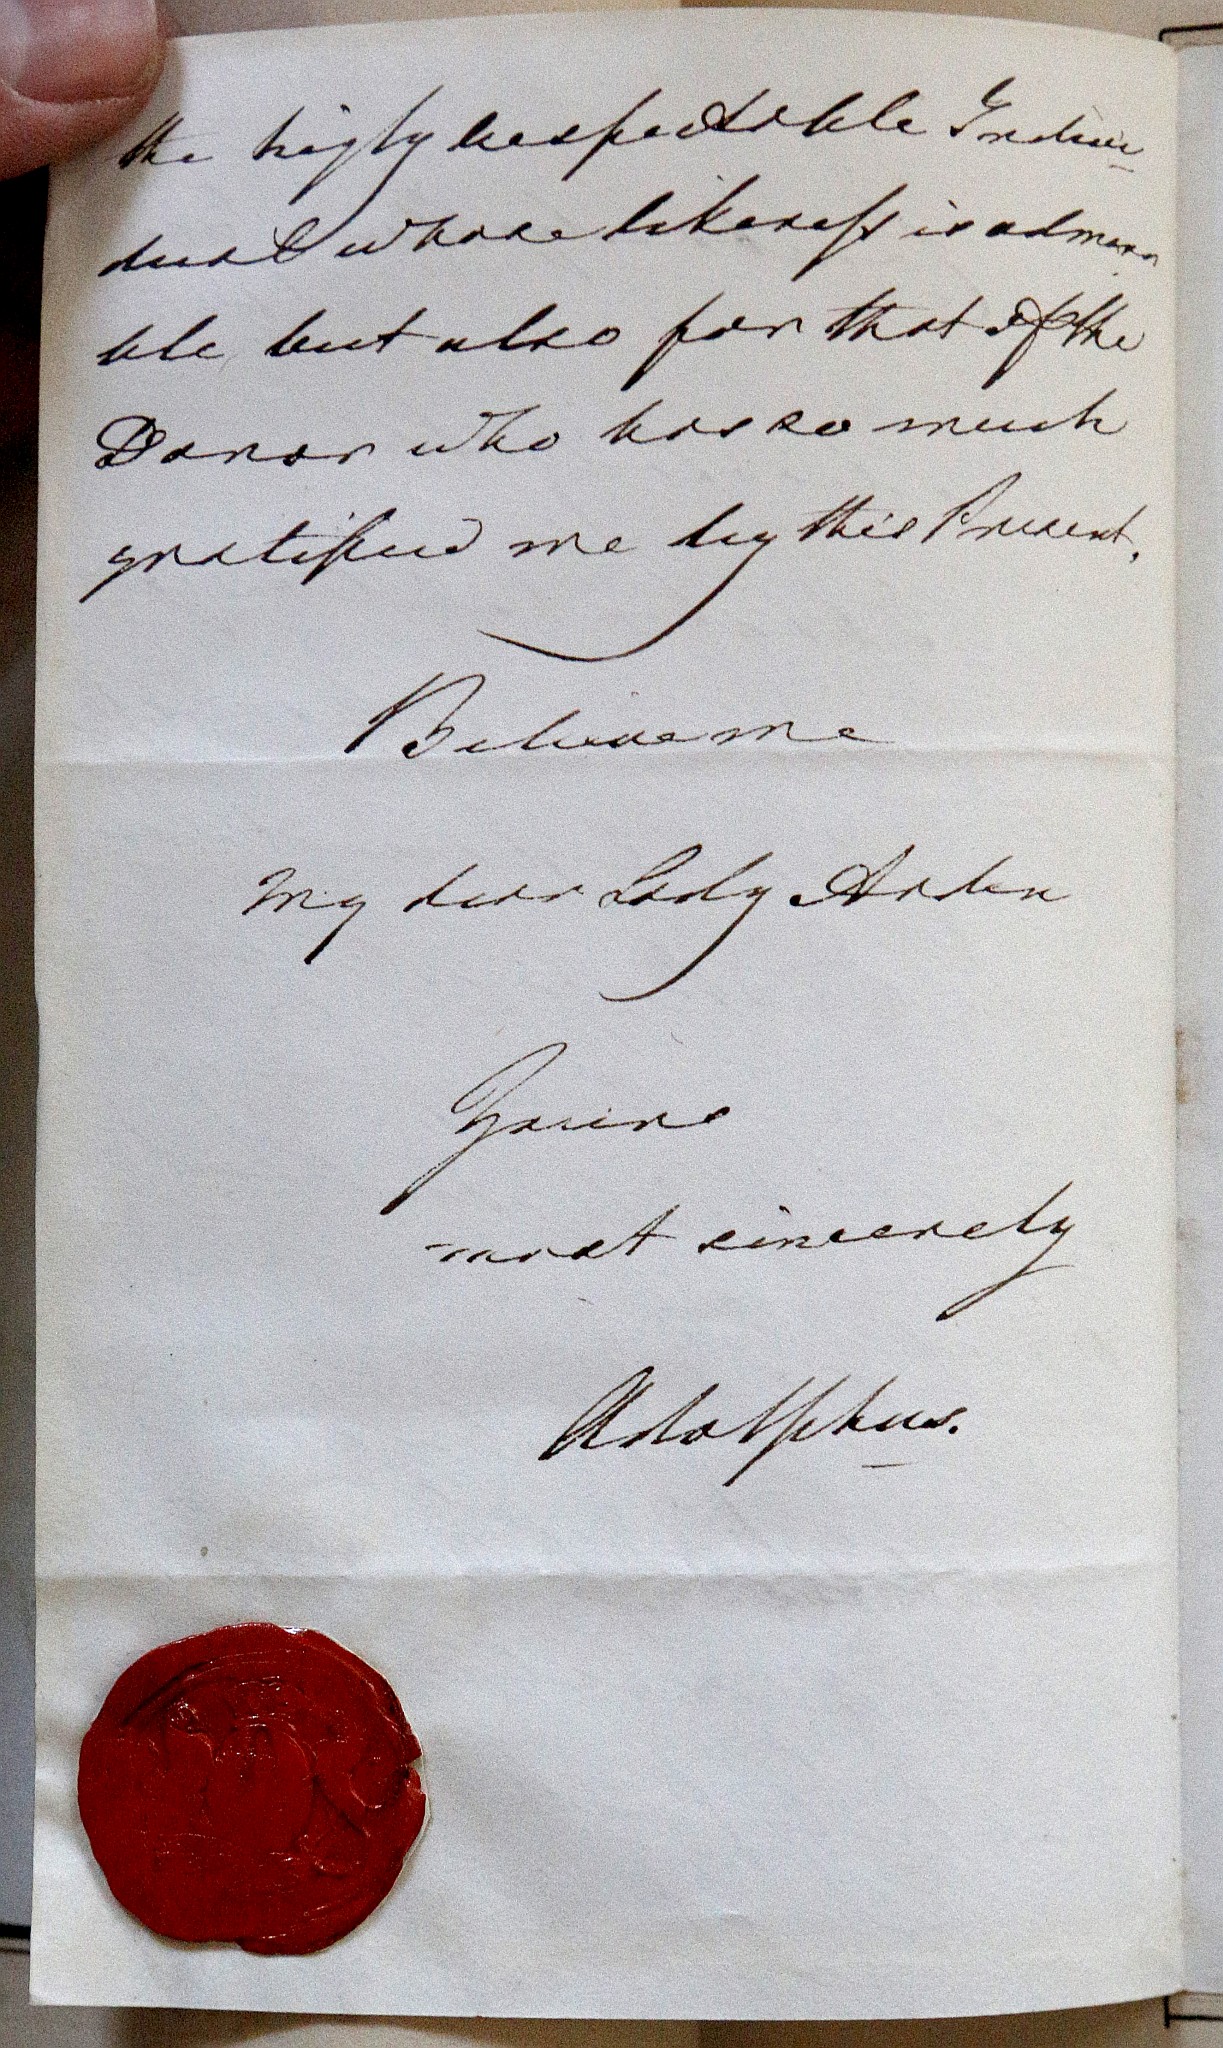 the higly respectable Indivi-
dual whose likeness is admira
ble but also for that of the
Donor who has so much
gratified me by this Present.
Believe me
My dear Lady Arden
Yours
most sincerely
Adolphus.